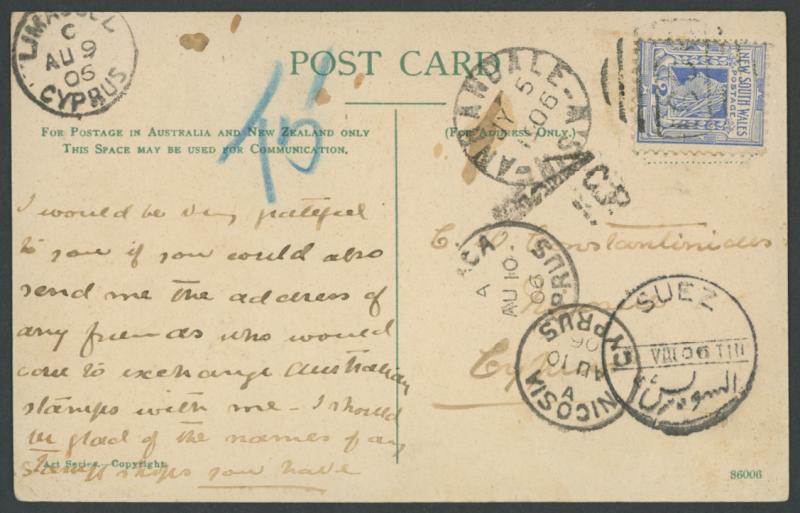 LIMASSOL
C
AU 9
06
CYPRUS
POST CARD
FOR POSTAGE IN AUSTRALIA AND NEW ZEALAND ONLY
THIS SPACE MAY BE USED FOR COMMUNICATION.
(FOR ADDRESS ONLY.)
NEW SOUTH WALES
POSTAGE
ANNANDALE N.S.W
JY 5
06
I would be very grateful
to you if you would also
send me the address of
any friends who would
care to exchange Australian
stamps with me - I should
be glad of the names of any
stamp shops you have
Constantinides
Cyprus
A
AU 10
06
NICOSIA CYPRUS
A
AU 10
06
SUEZ
السويس
Art Series.—Copyright.
86006